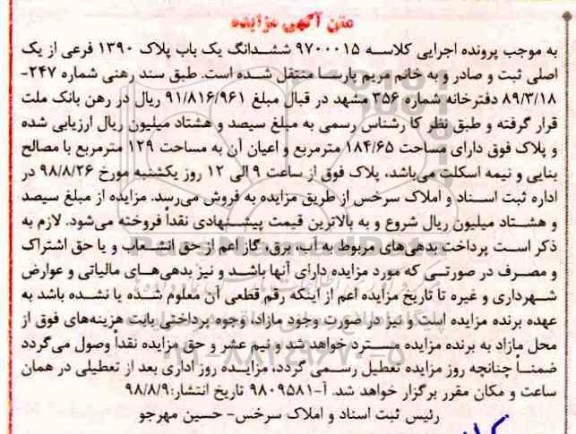 متن آگهی مزایده
به موجب پرونده اجرایی کلاسه ۹۷۰۰۰۱۵ ششدانگ یک باب پلاک ۱۳۹۰ فرعی از یک
اصلی ثبت و صادر و به خانم مریم پارسا منتقل شده است. طبق سند رهنی شماره ۲۴۷-
۸۹/۳/۱۸ دفترخانه شماره ۲۵۶ مشهد در قبال مبلغ ۹۱/۸۱۶/۹۶۱ ریال در رهن بانک ملت
قرار گرفته و طبق نظر کارشناس رسمی به مبلغ سیصد و هشتاد میلیون ریال ارزیابی شده
و پلاک فوق دارای مساحت ۱۸۴/۶۵ مترمربع و اعیان آن به مساحت ۱۲۹ مترمربع با مصالح
بنایی و نیمه اسکلت می‌باشد، پلاک فوق از ساعت ۹ الی ۱۲ روز یکشنبه مورخ ۹۸/۸/۲۶ در
اداره ثبت اسناد و املاک سرخس از طریق مزایده به فروش می‌رسد. مزایده از مبلغ سیصد
و هشتاد میلیون ریال شروع و به بالاترین قیمت پیشنهادی نقداً فروخته می‌شود. لازم به
ذکر است پرداخت بدهی‌های مربوط به آب، برق، گاز اعم از حق انشعاب و یا حق اشتراک
و مصرف در صورتی که مورد مزایده دارای آنها باشد و نیز بدهی‌های مالیاتی و عوارض
شهرداری و غیره تا تاریخ مزایده اعم از اینکه رقم قطعی آن معلوم شده یا نشده باشد به
عهده برنده مزایده است و نیز در صورت وجود مازاد، وجوه پرداختی بابت هزینه‌های فوق از
محل مازاد به برنده مزایده مسترد خواهد شد و نیم عشر و حق مزایده نقداً وصول می‌گردد
ضمناً چنانچه روز مزایده تعطیل رسمی گردد، مزایده روز اداری بعد از تعطیلی در همان
ساعت و مکان مقرر برگزار خواهد شد. آ-۹۸۰۹۵۸۱ تاریخ انتشار: ۹۸/۸/۹
رئیس ثبت اسناد و املاک سرخس- حسین مهرجو